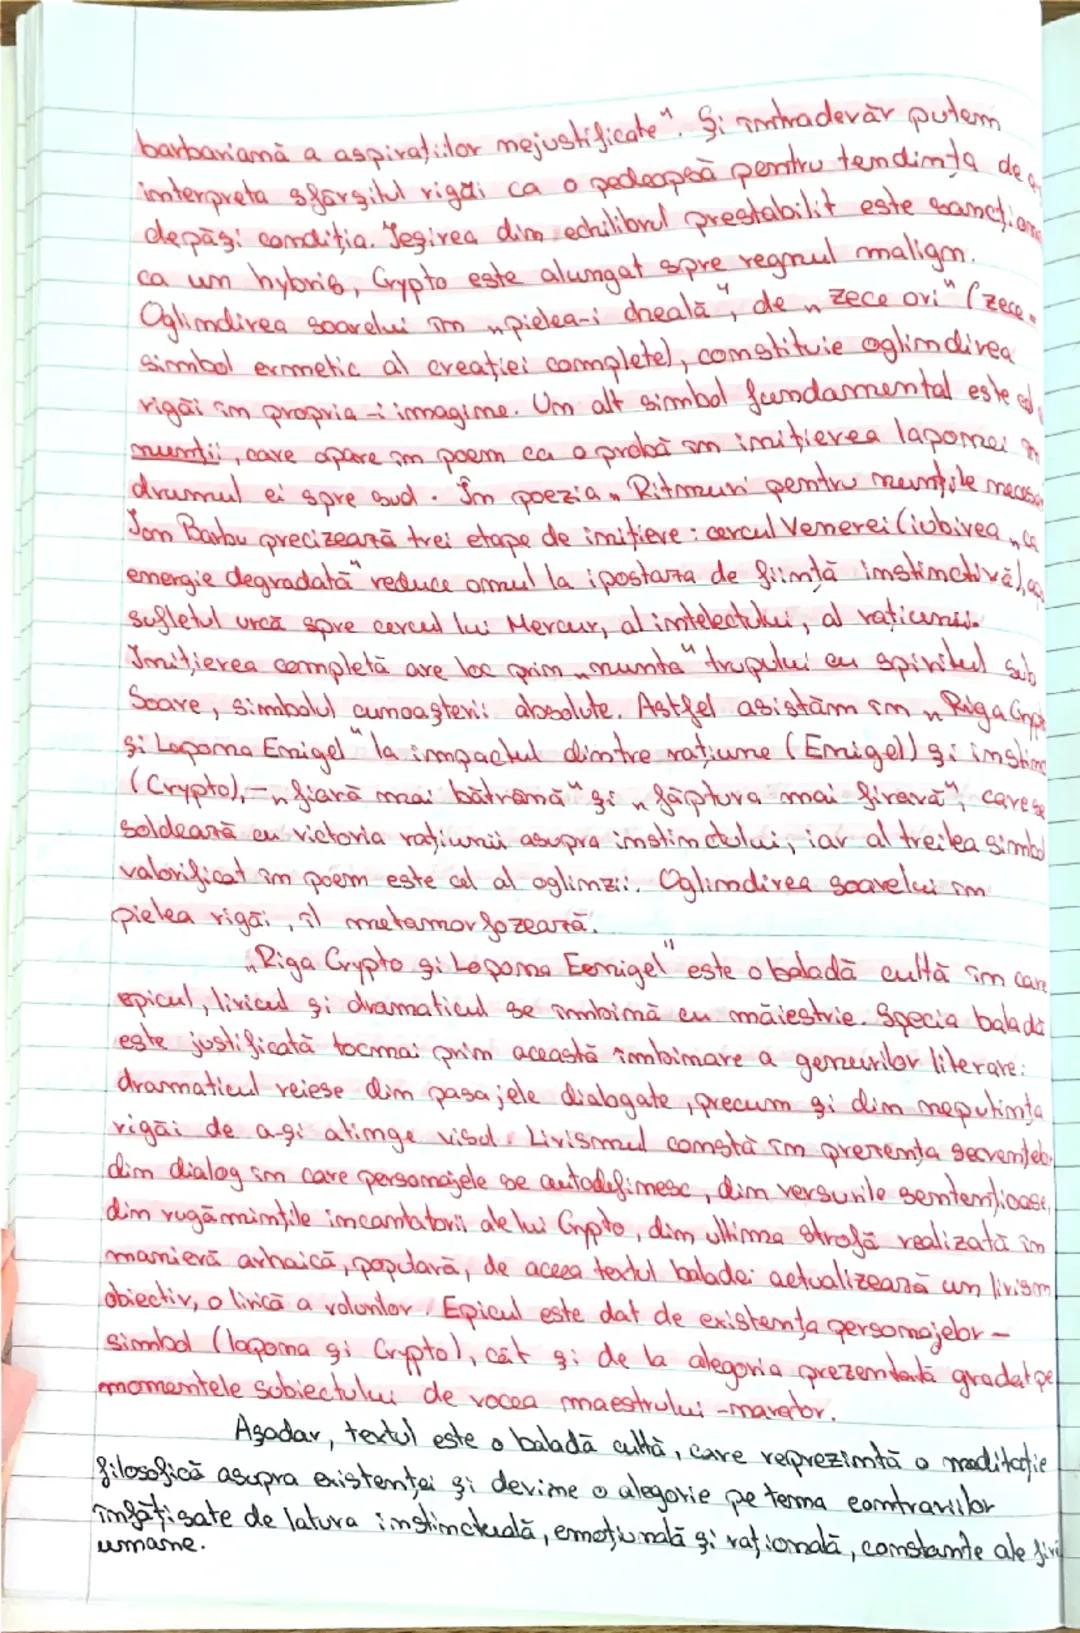 barbariană a aspirațiilor nejustificate". Și intradevăr putem
interpreta sfârșitul rigăi ca o pedeapsă pentru tendința de a-
depăși condiția. Ieșirea din echilibrul prestabilit este sancțion
ca un hybris, Crypto este alungat spre regnul malign.
Oglindirea soarelui în „pielea-i cheală", de „zece ori" (zece-
simbol ermetic al creației complete), constituie oglindirea
rigăi în propria-i imagine. Un alt simbol fundamental este al
nunții, care apare în poem ca o probă în inițierea laponei în
drumul ei spre sud. În poezia „Ritmuri pentru nunțile necesa
Ion Barbu precizează trei etape de inițiere: cercul Venerei (iubirea „ca
energie degradată" reduce omul la ipostaza de ființă instinctivă), ap
sufletul urcă spre cercul lui Mercur, al intelectului, al rațiunii.
Inițierea completă are loc prin „nunta" trupului cu spiritul sub
Soare, simbolul cunoașterii absolute. Astfel asistăm în „Riga Cryp
și Lapona Enigel" la impactul dintre rațiune (Enigel) și instinc
(Crypto), - „fiară mai bătrână" și „făptura mai firavă", care se
soldează cu victoria rațiunii asupra instinctului, iar al treilea simbol
valorificat în poem este cel al oglinzii. Oglindirea soarelui în
pielea rigăi, îl metamorfozează.
„Riga Crypto și Lapona Eenigel" este o baladă cultă în care
epicul, liricul și dramaticul se îmbină cu măiestrie. Specia baladă
este justificată tocmai prin această îmbinare a genurilor literare:
dramaticul reiese din pasajele dialogate, precum și din neputința
rigăi de a-și atinge visul. Lirismul constă în prezența secvențelor
din dialog în care personajele se autodefinesc, din versurile sentențioase,
din rugămințile incantatorii ale lui Crypto, din ultima strofă realizată în
manieră arhaică, populară, de aceea textul baladei actualizează un lirism
obiectiv, o lirică a voluntor. Epicul este dat de existența personajelor-
simbol (lapona și Crypto), cât și de la alegoria prezentată gradat pe
momentele subiectului de vocea maestrului-narator.
Așadar, textul este o baladă cultă, care reprezintă o meditație
filosofică asupra existenței și devine o alegorie pe tema contrariilor
înfățișate de latura instinctuală, emoțională și rațională, constante ale firii
umane.